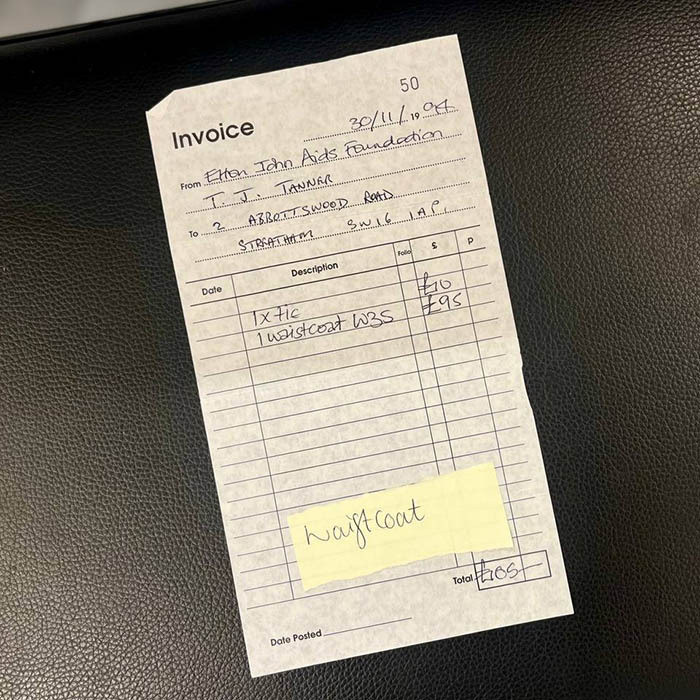 50
Invoice
30/11/1994
From Elton John Aids Foundation
T. J. TANNER
To 2 ABBOTTSWOOD ROAD
STREATHAM SW16 1AP.
Date Description Folio £ P
1 x tie £10
1 waistcoat W35 £95
waistcoat
Total £105—
Date Posted